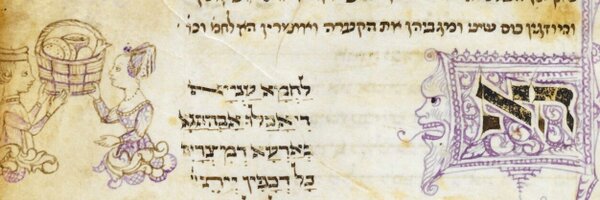 ומוזגין כוס שיני ומגביהין את הקערה ואומרין הא לחמ׳ וכו׳
הא
לחמא עניא
די אכלו אבהתנא
בארעא דמצרים
כל דכפין ייתי